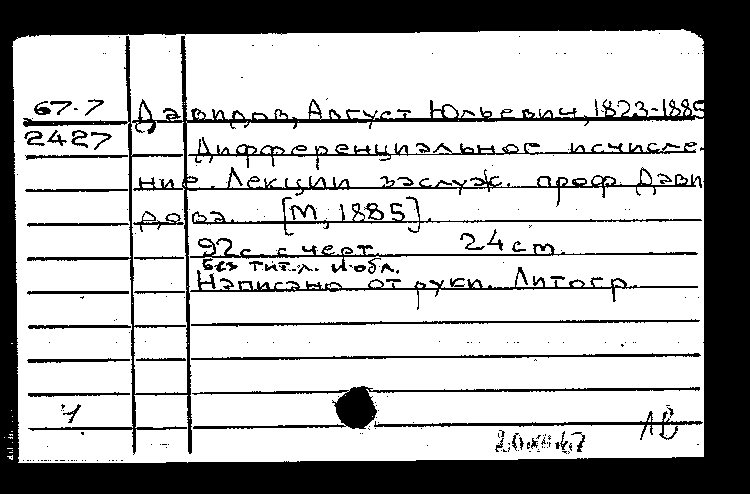 67.7 Давидов, Август Юльевич, 1823-1885
2427
Дифференциальное исчисле-
ние. Лекции заслуж. проф. Дави
дова. [М, 1885].
92с. с черт. 24 cm.
без тит.л. и обл.
Написано от руки. Литогр.
ЛВ